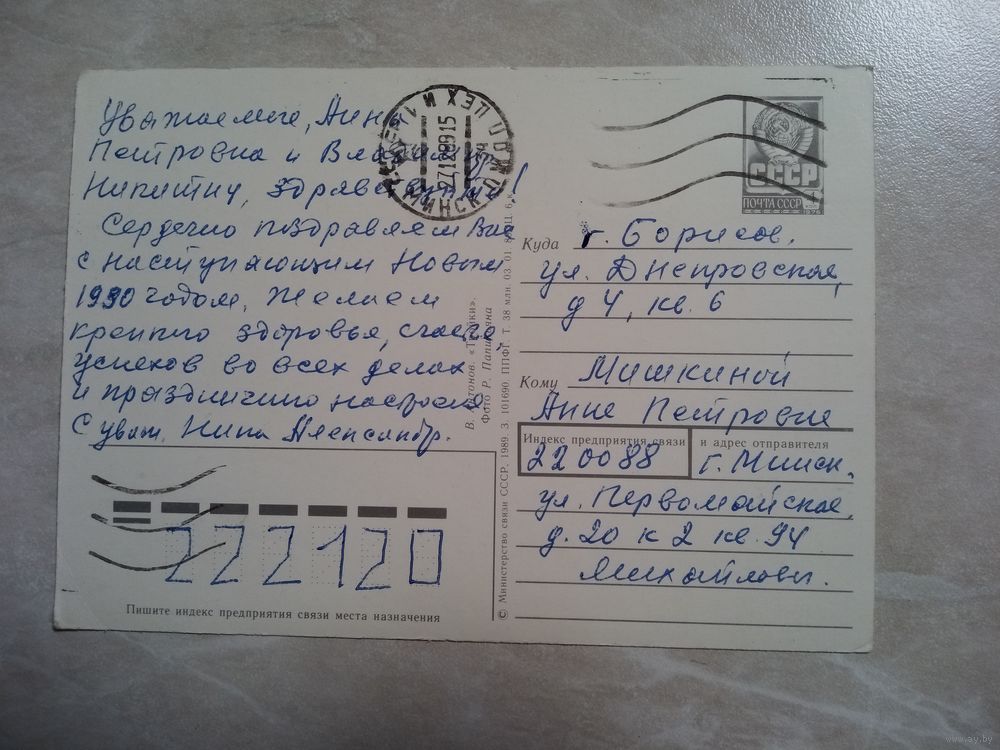 Уважаемые, Анна
Петровна и Владимир
Никитич, здравствуйте!
Сердечно поздравляем Вас
с наступающим Новым
1990 годом. Желаем
крепкого здоровья, счастья,
успехов во всех делах
и праздничного настроения
С уваж. Нина Александр.
МИНСК
271289915
ЦЕХ
СССР
ПОЧТА СССР
4
КОП
Куда г. Борисов,
ул. Днепровская,
д 4, кв. 6
Кому Мишкиной
Анне Петровне
Индекс предприятия связи и адрес отправителя
220088 г. Минск,
ул. Первомайская,
д. 20 к 2 кв. 94
Михайловы.
В. Антонов.
Фото Р. Папикьяна
© Министерство связи СССР. 1989 З. 101690. ППФГ. Т. 38 млн. 03. 01.
222120
Пишите индекс предприятия связи места назначения
www.ay.by